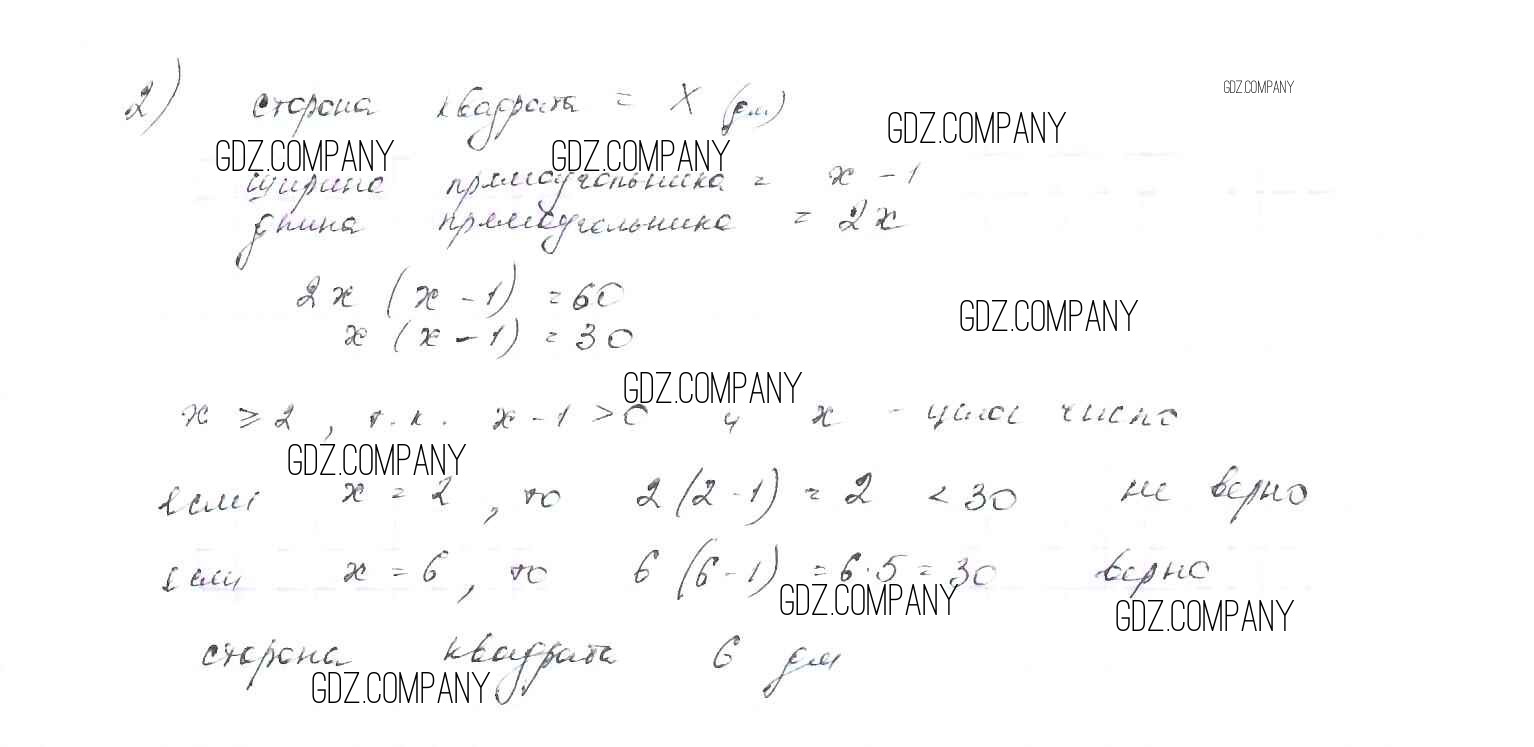 2) сторона квадрата = X (дм)
GDZ.COMPANY
GDZ.COMPANY
GDZ.COMPANY GDZ.COMPANY
ширина прямоугольника = x - 1
длина прямоугольника = 2x
2x (x - 1) = 60
GDZ.COMPANY
x (x - 1) = 30
GDZ.COMPANY
x ≥ 2, т.к. x - 1 > 0 и x - целое число
GDZ.COMPANY
если x = 2, то 2(2-1) = 2 < 30 не верно
если x = 6, то 6(6-1) = 6·5 = 30 верно
GDZ.COMPANY
GDZ.COMPANY
сторона квадрата 6 дм
GDZ.COMPANY